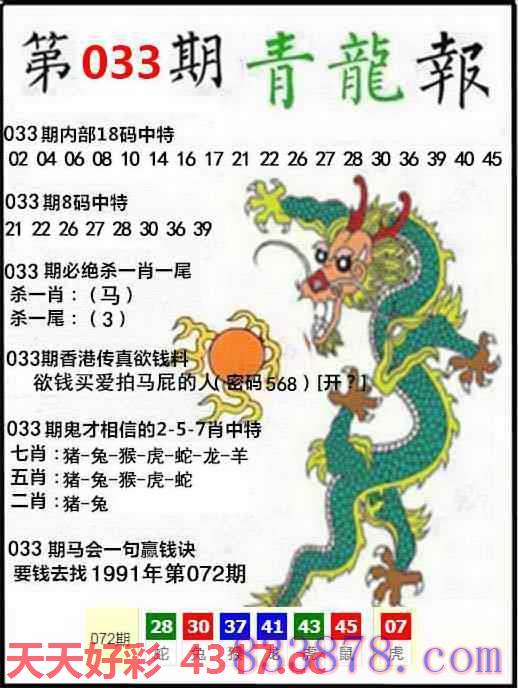 第033期 青龍報
033期内部18码中特
02 04 06 08 10 14 16 17 21 22 26 27 28 30 36 39 40 45
033期8码中特
21 22 26 27 28 30 36 39
033期必绝杀一肖一尾
杀一肖：（马）
杀一尾：（3）
033期香港传真欲钱料
欲钱买爱拍马屁的人(密码568)[开?]
033期鬼才相信的2-5-7肖中特
七肖：猪-兔-猴-虎-蛇-龙-羊
五肖：猪-兔-猴-虎-蛇
二肖：猪-兔
033期马会一句赢钱诀
要钱去找1991年第072期
072期 28 30 37 41 43 45 07
蛇 兔 猴 龙 虎 鼠 虎
天天好彩 4317.cc